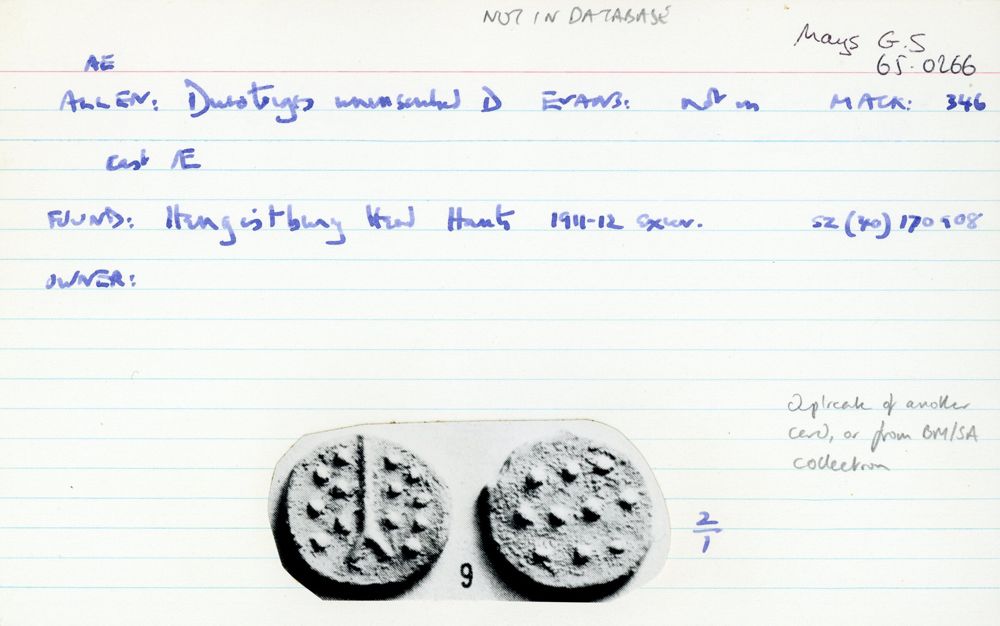 NOT IN DATABASE
Mays G.S
65.0266
AE
ALLEN: Durotriges uninscribed D EVANS: not in MACK: 346
cast Æ
FOUND: Hengistbury Head Hants 1911-12 excav. SZ (40) 170908
OWNER:
Duplicate of another
card, or from BM/SA
collection
9
2/1